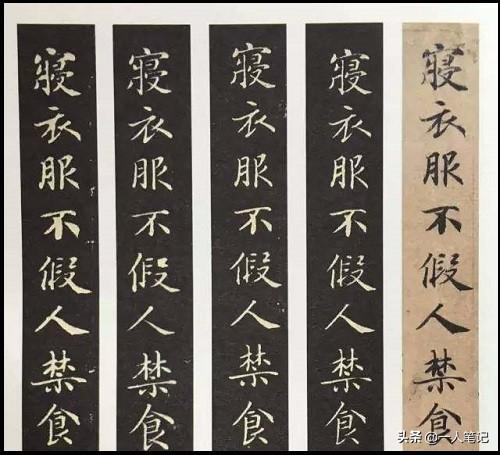 寢衣服不假人禁食
寢衣服不假人禁食
寢衣服不假人禁食
寢衣服不假人禁食
寢衣服不假人禁食
头条 @一人笔记